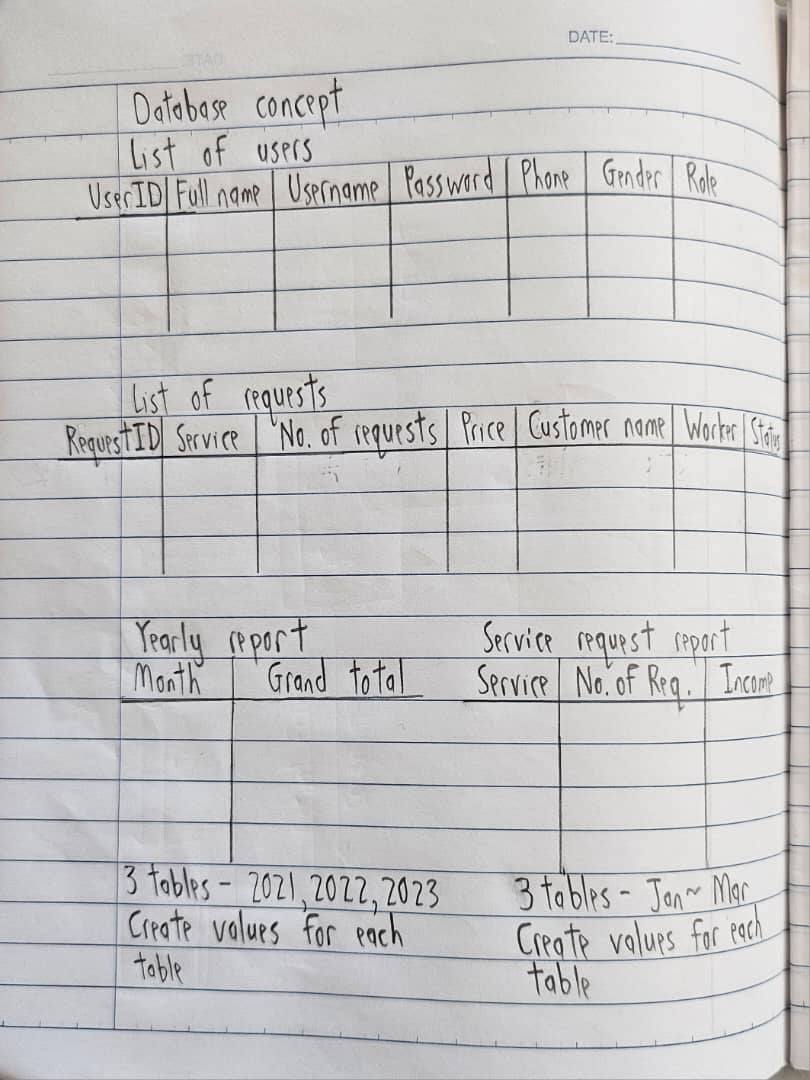 DATE:
Database concept
List of users
UserID Full name Username Password Phone Gender Role
List of requests
RequestID Service No. of requests Price Customer name Worker Status
Yearly report
Month Grand total
3 tables - 2021, 2022, 2023
Create values for each
table
Service request report
Service No. of Req. Income
3 tables - Jan ~ Mar
Create values for each
table